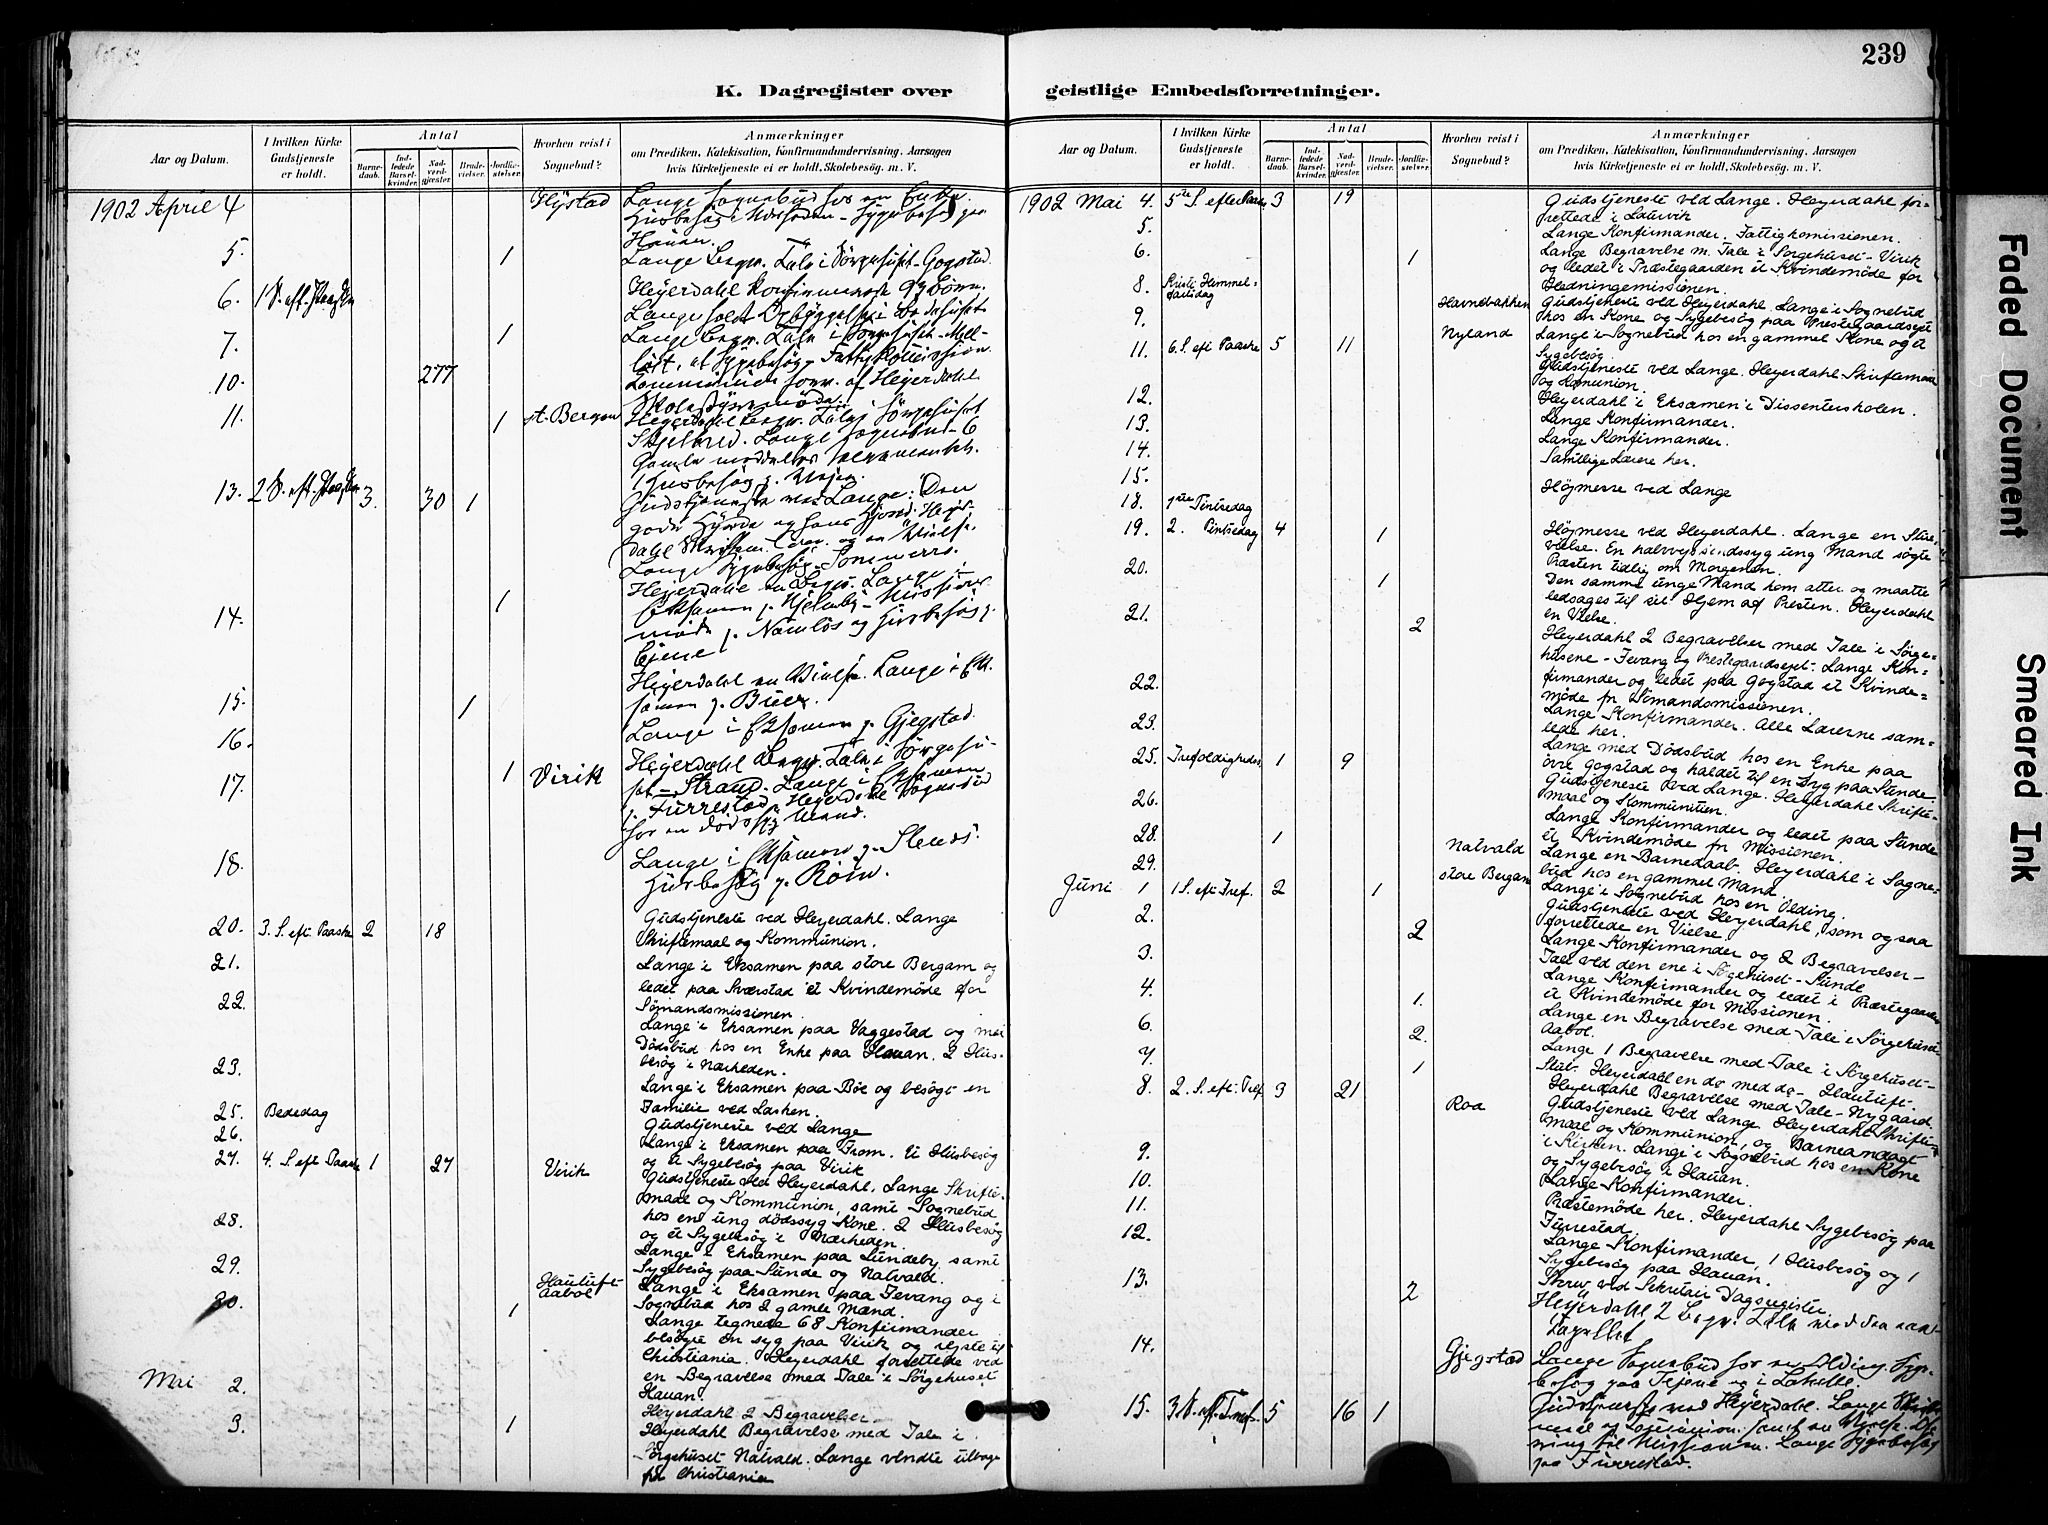 239
K. Dagregister over geistlige Embedsforretninger.
Aar og Datum.
I hvilken Kirke Gudstjeneste er holdt.
Antal
Barnedaab.
Indledede Barselkvinder.
Nadverdgjester.
Brudevielser.
Jordfæstelser.
Hvorhen reist i Sognebud?
Anmærkninger
om Prædiken, Katekisation, Konfirmandundervisning, Aarsagen
hvis Kirketjeneste ei er holdt, Skolebesög m. V.
1902 April 4
Lange Sognebud hos en
5. 1
Lange Begr. Tale i Sørgehuset - Gogstad.
6. 1 S. eft. Paaske
Heyerdahl konfirmerede 99 børn.
7. 1
10. 277
11. 1 st. Bergan
13. 2 S. eft. Paaske 3. 30 1
Gudstjeneste ved Lange: Den
gode Hyrde og hans Hjord.
1
14.
15. 1
16.
Lange i Eksamen p. Gjegstad.
17. 1 Virik
Heyerdahl Begr. Tale i Sørgehu-
set - Strand. Lange i Eksamen
p. Furrestad. Heyerdahl Sognebud
hos en dødssyg Mand.
18.
Husbesøg p.
20. 3. S. eft. Paaske 2 18
Gudstjeneste ved Heyerdahl. Lange
Skriftemaal og Kommunion.
21.
Lange i Eksamen paa store Bergan og
ledet paa Sverstad et Kvindemöde for
Sömandsmissionen.
22.
Lange i Eksamen paa Vaggestad og med
Dödsbud hos en Enke paa Hauan. 2 Hus-
besög i Nærheden.
23.
Lange i Eksamen paa Böe og besögt en
Familie ved Lasken.
25. Bededag
Gudstjeneste ved Lange
26.
Lange i Eksamen paa From. Et Husbesög
og et Sygebesög paa Virik
27. 4. S. eft Paaske 1 27 Virik
Gudstjeneste ved Heyerdahl, Lange Skrifte-
maal og Kommunion, samt Sognebud
hos en ung dödssyg Kone. 2 Husbesög
og et Sygebesög i Nærheden.
28.
Lange i Eksamen paa Sundeby, samt
Sygebesög paa Sunde og Natvald.
29. Hauluft - Aabol
Lange i Eksamen paa Fevang og i
Sognebud hos 2 gamle Mænd
30. 1
Lange tegnede 68 Konfirmander
besögte en syg paa Virik og rejste til
Christiania. Heyerdahl forrettede ved
en Begravelse med Tale i Sörgehuset
Hauan.
Mai 2.
Heyerdahl 2 Begravelser.
3. 1
Heyerdahl Begravelse med Tale i
Sörgehuset Natvald. Lange vendte tilbage
fra Christiania
Aar og Datum.
I hvilken Kirke Gudstjeneste er holdt.
Antal
Barnedaab.
Indledede Barselkvinder.
Nadverdgjester.
Brudevielser.
Jordfæstelser.
Hvorhen reist i Sognebud?
Anmærkninger
om Prædiken, Katekisation, Konfirmandundervisning, Aarsagen
hvis Kirketjeneste ei er holdt, Skolebesög m. V.
1902 Mai 4. 5te S. efter Paaske 3 19
Gudstjeneste ved Lange. Heyerdahl for-
rettede i Laurvik
5.
Lange Konfirmander. Fattigkomissionen.
6. 1
Lange Begravelse m. Tale i Sörgehuset - Virik
og ledet i Præstegaarden et Kvindemöde for
Hedningemissionen.
8. Kristi Himmel-
fartsdag
Gudstjeneste ved Heyerdahl. Lange i Sognebud
hos en Kone og Sygebesög paa Prestegaardsejet
9. Havnebakken
Nyland
Lange i Sognebud hos en gammel Kone og et
Sygebesög.
11. 6. S. eft Paaske 5 11
Gudstjeneste ved Lange. Heyerdahl Skriftemaal
og Komunion.
12.
Heyerdahl i Eksamen i Dissenterskolen.
13.
Lange Konfirmander.
14.
Lange Konfirmander.
15.
Samtlige Lærere her.
18. 1ste Pintsedag
Höjmesse ved Lange
19. 2. Pintsedag 4 1
Höjmesse ved Heyerdahl. Lange en
vielse. En halvvejs sindssyg ung Mand sögte
Præsten tidlig om Morgenen.
20. 1
Den samme unge Mand kom atter og maatte
ledsages til sit Hjem af Presten. Heyerdahl
en Vielse.
21. 2
Heyerdahl 2 Begravelser med Tale i Sörge-
husene - Fevang og Prestegaardsejet. Lange Kon-
firmander og ledet paa Gogstad et Kvinde-
möde for Sömandsmissionen.
22.
Lange Konfirmander. Alle Lærerne sam-
lede her.
23.
Lange med Dödsbud hos en Enke paa
övre Gogstad og kaldet til en Syg paa Sunde.
25. Trefoldigheds 1 9
Gudstjeneste ved Lange. Heyerdahl Skrifte-
maal og Kommunion.
26.
Lange Konfirmander og ledet paa Sunde
et Kvindemöde for Missionen.
28. 1 Natvald
Lange en Barnedaab. Heyerdahl i Sogne-
bud hos en gammel Mand
29. store Bergan
Lange i Sognebud hos en Olding.
Juni 1 1 S. eft Tref. 2 1
Gudstjeneste ved Heyerdahl, som ogsaa
forrettede en Vielse
2. 2
Lange Konfirmander og 2 Begravelser -
Tale ved den ene i Sörgehuset - Sunde
3.
Lange Konfirmander og ledet i Præstegaarden
et Kvindemöde for Missionen.
4. 1.
Lange en Begravelse med Tale i Sörgehuset
Aabol.
6. 2.
Lange 1 Begravelse med Tale i Sörgehuset -
Stub. Heyerdahl en do med do - Hauluft.
7. 1
Heyerdahl Begravelse med Tale - Nygaard.
8. 2. S. eft. Tref 3 21 Roa
Gudstjeneste ved Lange Heyerdahl Skrifte-
maal og Kommunion, og Barneandagt
i Kirken. Lange i Sognebud hos en Kone
og Sygebesög i Hauan.
9.
Lange Konfirmander.
10.
Præstemöde her. Heyerdahl Sygebesög paa
Furrestad
11.
12.
Lange Konfirmander, 1 Husbesög og 1
Sygebesög paa Hauan.
13. 2
Skrev ved Sekretær Dagsregister.
Heyerdahl 2 Begr. Tale ved den ene
14. Gjegstad
Lange Sognebud hos en Olding. Syge-
besøg paa
15. 3 S. eft. Tref. 5 16 1
Gudstjeneste ved Heyerdahl. Lange Skrifte-
Lange Sygebesøg
paa Furrestad.
Faded Document
Smeared Ink